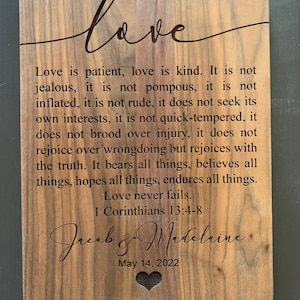 love
Love is patient, love is kind. It is not
jealous, it is not pompous, it is not
inflated, it is not rude, it does not seek its
own interests, it is not quick-tempered, it
does not brood over injury, it does not
rejoice over wrongdoing but rejoices with
the truth. It bears all things, believes all
things, hopes all things, endures all things.
Love never fails.
1 Corinthians 13:4-8
Jacob & Madelaine
May 14, 2022